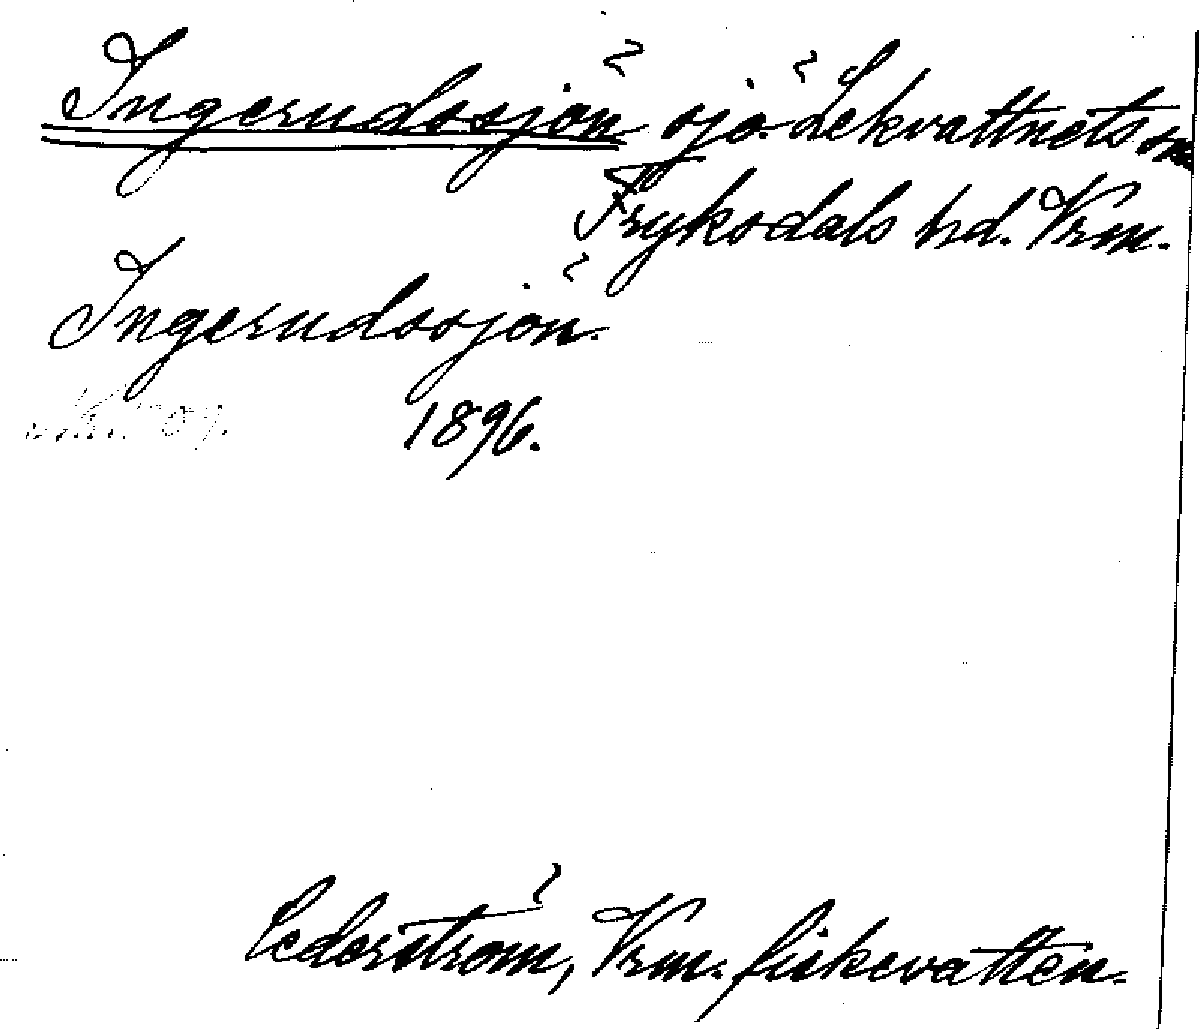 Ingerudssjön sjö. Lekvattnets sn
Fryksdals hd. Vrm.
Ingerudssjön.
1896.
Cederström, Vrm. fiskevatten.